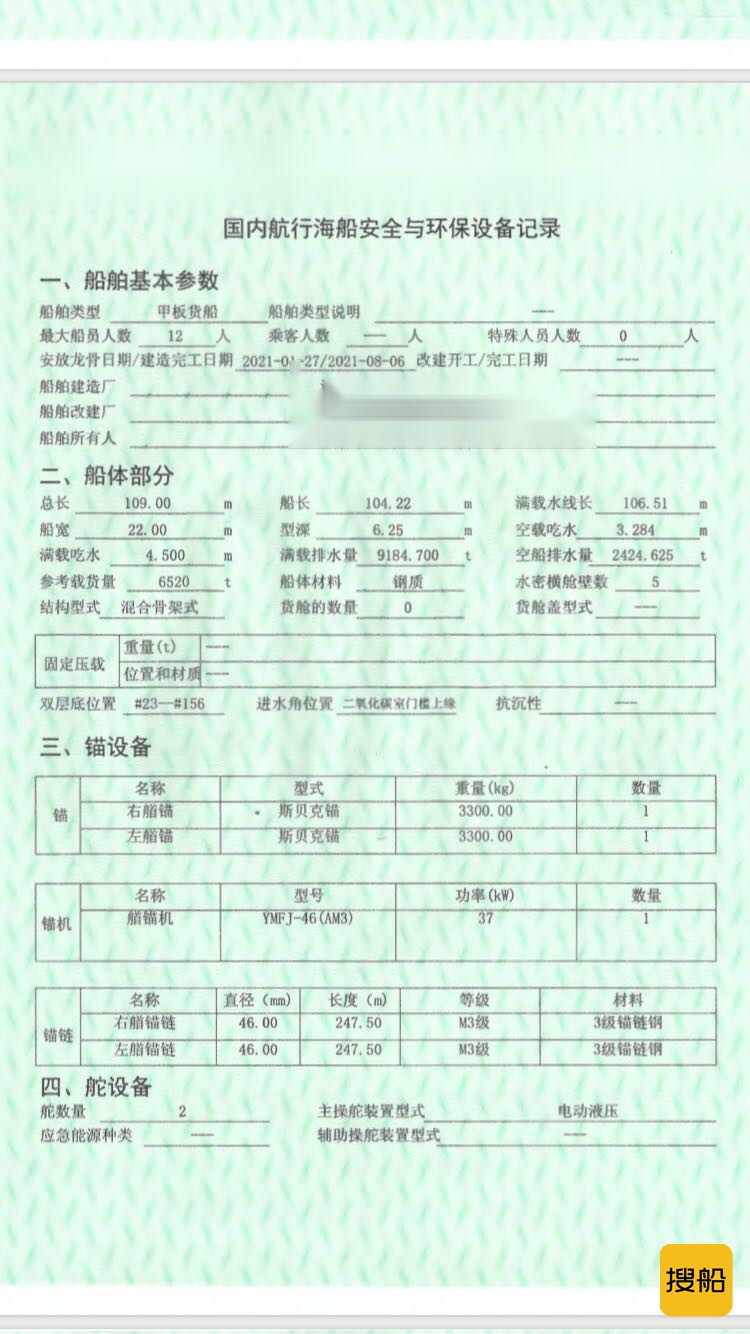 国内航行海船安全与环保设备记录
一、船舶基本参数
船舶类型 甲板货船 船舶类型说明 ---
最大船员人数 12 人 乘客人数 --- 人 特殊人员人数 0 人
安放龙骨日期/建造完工日期 2021-0 -27/2021-08-06 改建开工/完工日期 ---
船舶建造厂
船舶改建厂
船舶所有人
二、船体部分
总长 109.00 m 船长 104.22 m 满载水线长 106.51 m
船宽 22.00 m 型深 6.25 m 空载吃水 3.284 m
满载吃水 4.500 m 满载排水量 9184.700 t 空船排水量 2424.625 t
参考载货量 6520 t 船体材料 钢质 水密横舱壁数 5
结构型式 混合骨架式 货舱的数量 0 货舱盖型式 ---
固定压载 重量(t) ---
位置和材质 ---
双层底位置 #23—#156 进水角位置 二氧化碳室门槛上缘 抗沉性 ---
三、锚设备
锚 名称 型式 重量(kg) 数量
右艏锚 斯贝克锚 3300.00 1
左艏锚 斯贝克锚 3300.00 1
锚机 名称 型号 功率(kW) 数量
艏锚机 YMFJ-46(AM3) 37 1
锚链 名称 直径(mm) 长度(m) 等级 材料
右艏锚链 46.00 247.50 M3级 3级锚链钢
左艏锚链 46.00 247.50 M3级 3级锚链钢
四、舵设备
舵数量 2 主操舵装置型式 电动液压
应急能源种类 --- 辅助操舵装置型式 ---
搜船